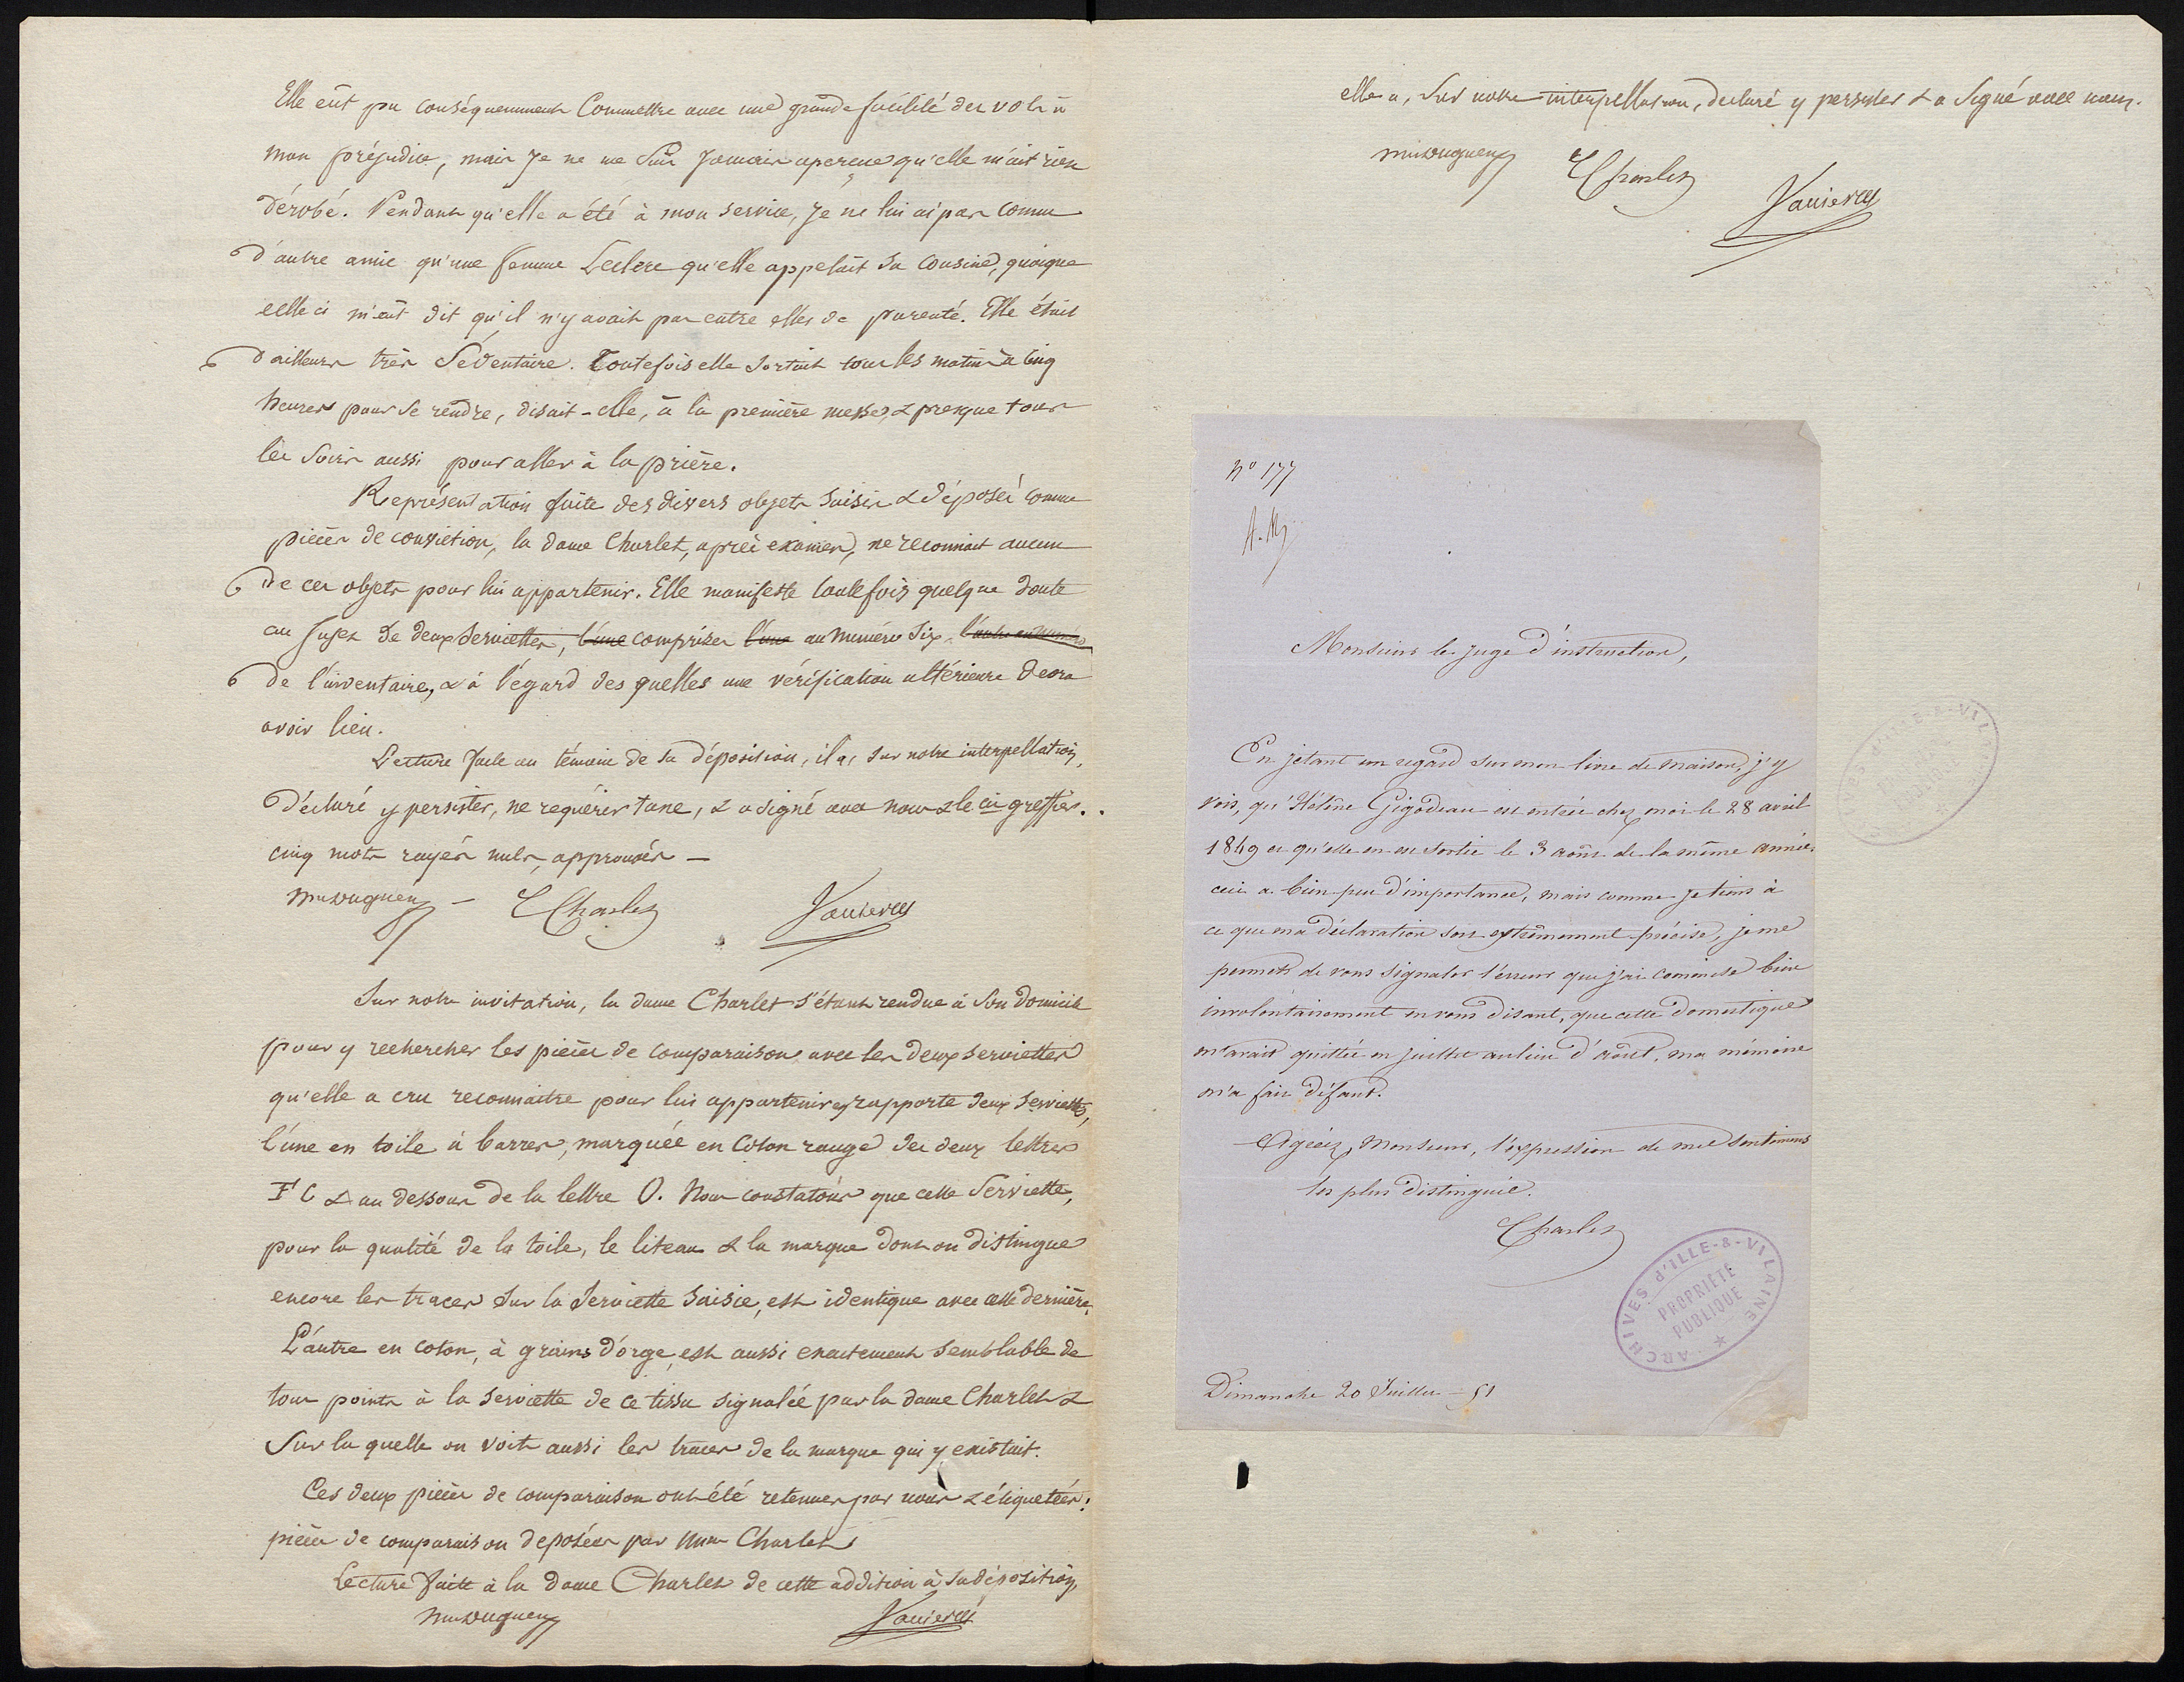 Elle eût pu conséquemment Commettre avec une grande facilité des vols à
mon préjudice, mais Je ne me suis Jamais aperçue qu'elle m'ait rien
dérobé. Pendant qu'elle a été à mon service, Je ne lui ai pas connu
d'autre amie qu'une femme Leclerc qu'elle appelait sa cousine, quoique
celle ci m'eût dit qu'il n'y avait pas entre elles de parenté. Elle était
d'ailleurs très Sédentaire. Toutefois elle sortait tous les matins à cinq
heures pour se rendre, disait-elle, à la première messe, & presque tous
les soirs aussi pour aller à la prière.
Représentation faite des divers objets saisis & déposés comme
pièces de conviction, la dame Charlet, après examen, ne reconnait aucun
de ces objets pour lui appartenir. Elle manifeste toutefois quelque doute
au sujet de deux serviettes, l'une comprises l'une au numéro six l'autre au numéro
de l'inventaire, & à l'égard des quelles une vérification ultérieure devra
avoir lieu.
Lecture faite au témoin de sa déposition, il a, sur notre interpellation,
déclaré y persister, ne requérir taxe, & a signé avec nous & le dit greffier..
cinq mots rayés nuls, approuvés —
C Charlet Vanier
Sur notre invitation, la dame Charlet s'étant rendue à son domicile
pour y rechercher les pièces de comparaison avec les deux serviettes
qu'elle a cru reconnaitre pour lui appartenir, rapporte deux serviettes,
l'une en toile à barres, marquée en coton rouge des deux lettres
F C & au dessous de la lettre O. Nous constatons que cette serviette,
pour la qualité de la toile, le liteau & la marque dont on distingue
encore les traces sur la serviette saisie, est identique avec cette dernière.
L'autre en coton, à grains d'orge, est aussi exactement semblable de
tous points à la serviette de ce tissu signalée par la dame Charlet &
sur la quelle on voit aussi les traces de la marque qui y existait.
Ces deux pièces de comparaison ont été retenues par nous & étiquetées:
pièces de comparaison déposées par Mme Charlet
Lecture faite à la dame Charlet de cette addition à sa déposition,
Vanier
elle a, sur notre interpellation, déclaré y persister & a signé avec nous.
C Charlet
Vanier
N° 177
Monsieur le Juge d'instruction,
En jetant un regard sur mon livre de maison, j'y
vois, qu'Hélène Gigodeau est entrée chez moi le 28 avril
1849 et qu'elle en est sortie le 3 août de la même année.
ceci a bien peu d'importance, mais comme je tiens à
ce que ma déclaration soit extrêmement précise, je me
permets de vous signaler l'erreur que j'ai commise bien
involontairement en vous disant, que cette domestique
m'avait quittée en juillet au lieu d'août, ma mémoire
m'a fait défaut.
Agréez, Monsieur, l'expression de mes sentimens
les plus distingués.
Charlet
ARCHIVES d'ILLE-&-VILAINE
PROPRIÉTÉ
PUBLIQUE
Dimanche 20 Juillet - 51